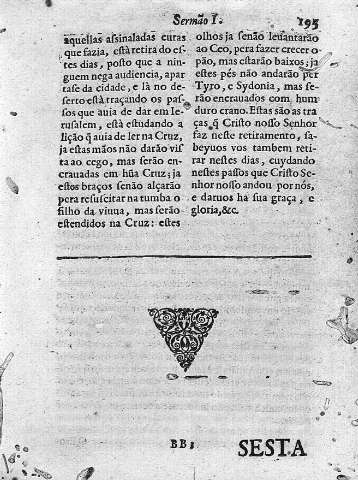 Sermão I. 195
aquellas assinaladas curas
que fazia, està retira do es-
tes dias, posto que a nin-
guem nega audiencia, apar
tase da cidade, e là no de-
serto està traçando os pas-
sos que auia de dar em Ie-
rusalem, està estudando a
lição q̃ auia de ler na Cruz,
ja estas mãos não darão vis
ta ao cego, mas serão en-
crauadas em hũa Cruz; ja
estos braços senão alçarão
pera resuscitar na tumba o
filho da viuua, mas serão
estendidos na Cruz: estes
olhos ja senão leuantarão
ao Ceo, pera fazer crecer o
pão, mas estarão baixos; ja
estes pés não andarão per
Tyro, e Sydonia, mas se-
rão encrauados com hum
duro crauo. Estas são as tra
ças, q̃ Cristo nosso Senhor
faz neste retiramento, sa-
beyuos vos tambem retirar
nestes dias, cuydando
nestes passos que Cristo Se-
nhor nosso andou por nós,
e daruos ha sua graça, e
gloria, &c.
BB3
SESTA